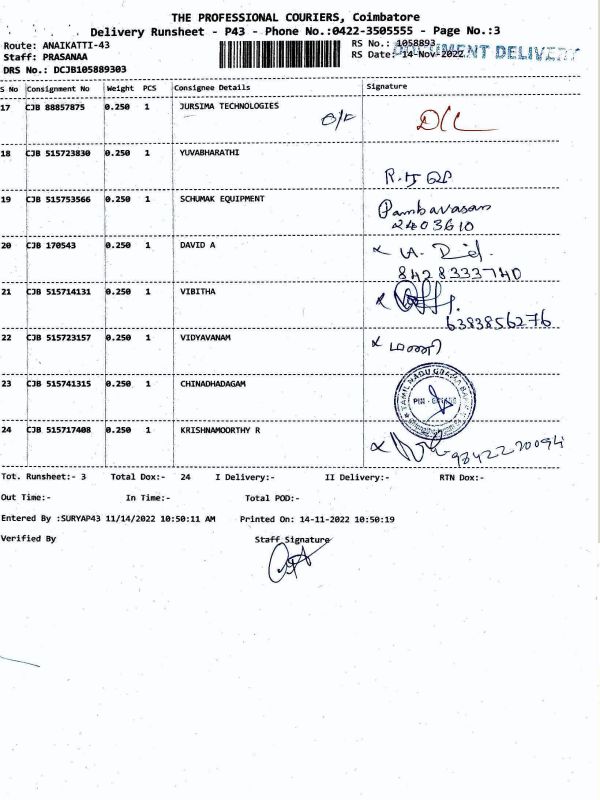 THE PROFESSIONAL COURIERS, Coimbatore
Delivery Runsheet - P43 - Phone No.:0422-3505555 - Page No.:3
Route: ANAIKATTI-43 RS No.: 1058893
Staff: PRASANAA RS Date: 14-Nov-2022 DOCUMENT DELIVERY
DRS No.: DCJB105889303
S No Consignment No Weight PCS Consignee Details Signature
17 CJB 88857875 0.250 1 JURSIMA TECHNOLOGIES D/L
18 CJB 515723830 0.250 1 YUVABHARATHI
19 CJB 515753566 0.250 1 SCHUMAK EQUIPMENT Pambavasan
2403610
20 CJB 170543 0.250 1 DAVID A
8428333740
21 CJB 515714131 0.250 1 VIBITHA
6383856276
22 CJB 515723157 0.250 1 VIDYAVANAM மணி
23 CJB 515741315 0.250 1 CHINADHADAGAM TAMIL NADU GRAMA BANK
24 CJB 515717408 0.250 1 KRISHNAMOORTHY R 9842220094
Tot. Runsheet:- 3 Total Dox:- 24 I Delivery:- II Delivery:- RTN Dox:-
Out Time:- In Time:- Total POD:-
Entered By :SURYAP43 11/14/2022 10:50:11 AM Printed On: 14-11-2022 10:50:19
Verified By Staff Signature